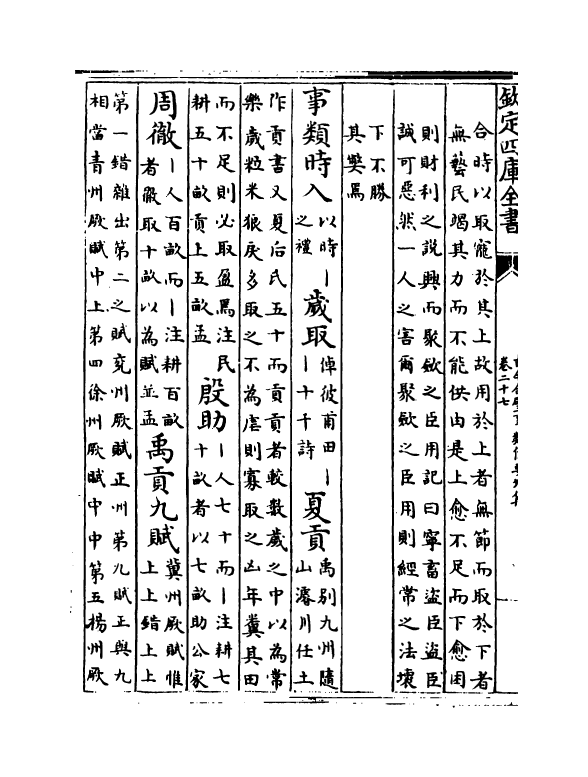 欽定四庫全書
卷二十七
合時以取寵於其上故用於上者無節而取於下者
無藝民竭其力而不能供由是上愈不足而下愈困
則財利之說興而聚斂之臣用記曰寧畜盜臣盜臣
誠可惡然一人之害爾聚斂之臣用則經常之法壞
下不勝
其弊焉
事類時入
以時丨
之禮
歲取
倬彼甫田丨
丨十千詩
夏貢
禹别九州隨
山濬川任土
作貢書又夏后氏五十而貢貢者較數歲之中以為常
樂歲粒米狼戾多取之不為虐則寡取之凶年糞其田
而不足則必取盈焉注民
耕五十畝貢上五畝孟
殷助
丨人七十而丨注耕七
十畝者以七畝助公家
周徹
丨人百畝而丨注耕百畝
者徹取十畝以為賦並孟
禹貢九賦
冀州厥賦惟
上上錯上上
第一錯雜出第二之賦兖州厥賦正州第九賦正與九
相當青州厥賦中上第四徐州厥賦中中第五楊州厥